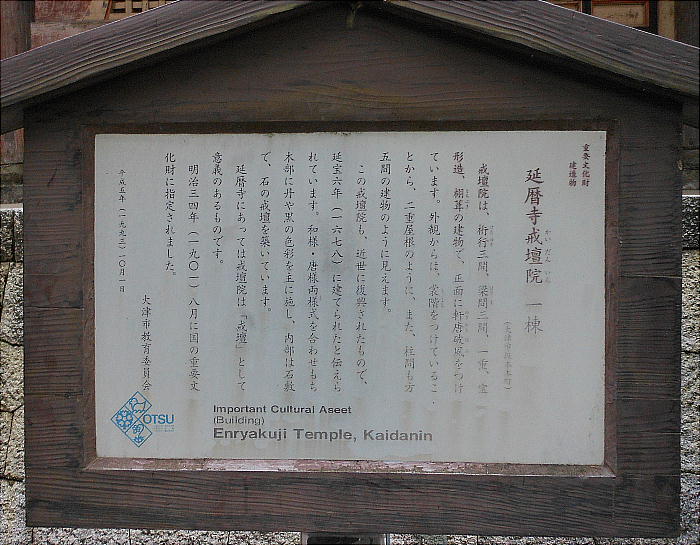 重要文化財
建造物
延暦寺戒壇院 一棟
かいだんいん
(大津市坂本本町)
戒壇院は、桁行三間、梁間三間、一重、宝
形造、栩葺の建物で、正面に軒唐破風をつけ
ています。外観からは、裳階をつけているこ
とから、二重屋根のように、また、柱間も方
五間の建物のように見えます。
この戒壇院も、近世に復興されたもので、
延宝六年(一六七八)に建てられたと伝えら
れています。和様・唐様両様式を合わせもち
木部に丹や黒の色彩を主に施し、内部は石敷
で、石の戒壇を築いています。
延暦寺にあっては戒壇院は「戒壇」として
意義のあるものです。
明治三四年(一九〇一)八月に国の重要文
化財に指定されました。
平成五年(一九九三)一〇月一日
大津市教育委員会
OTSU
Important Cultural Aseet
(Building)
Enryakuji Temple, Kaidanin